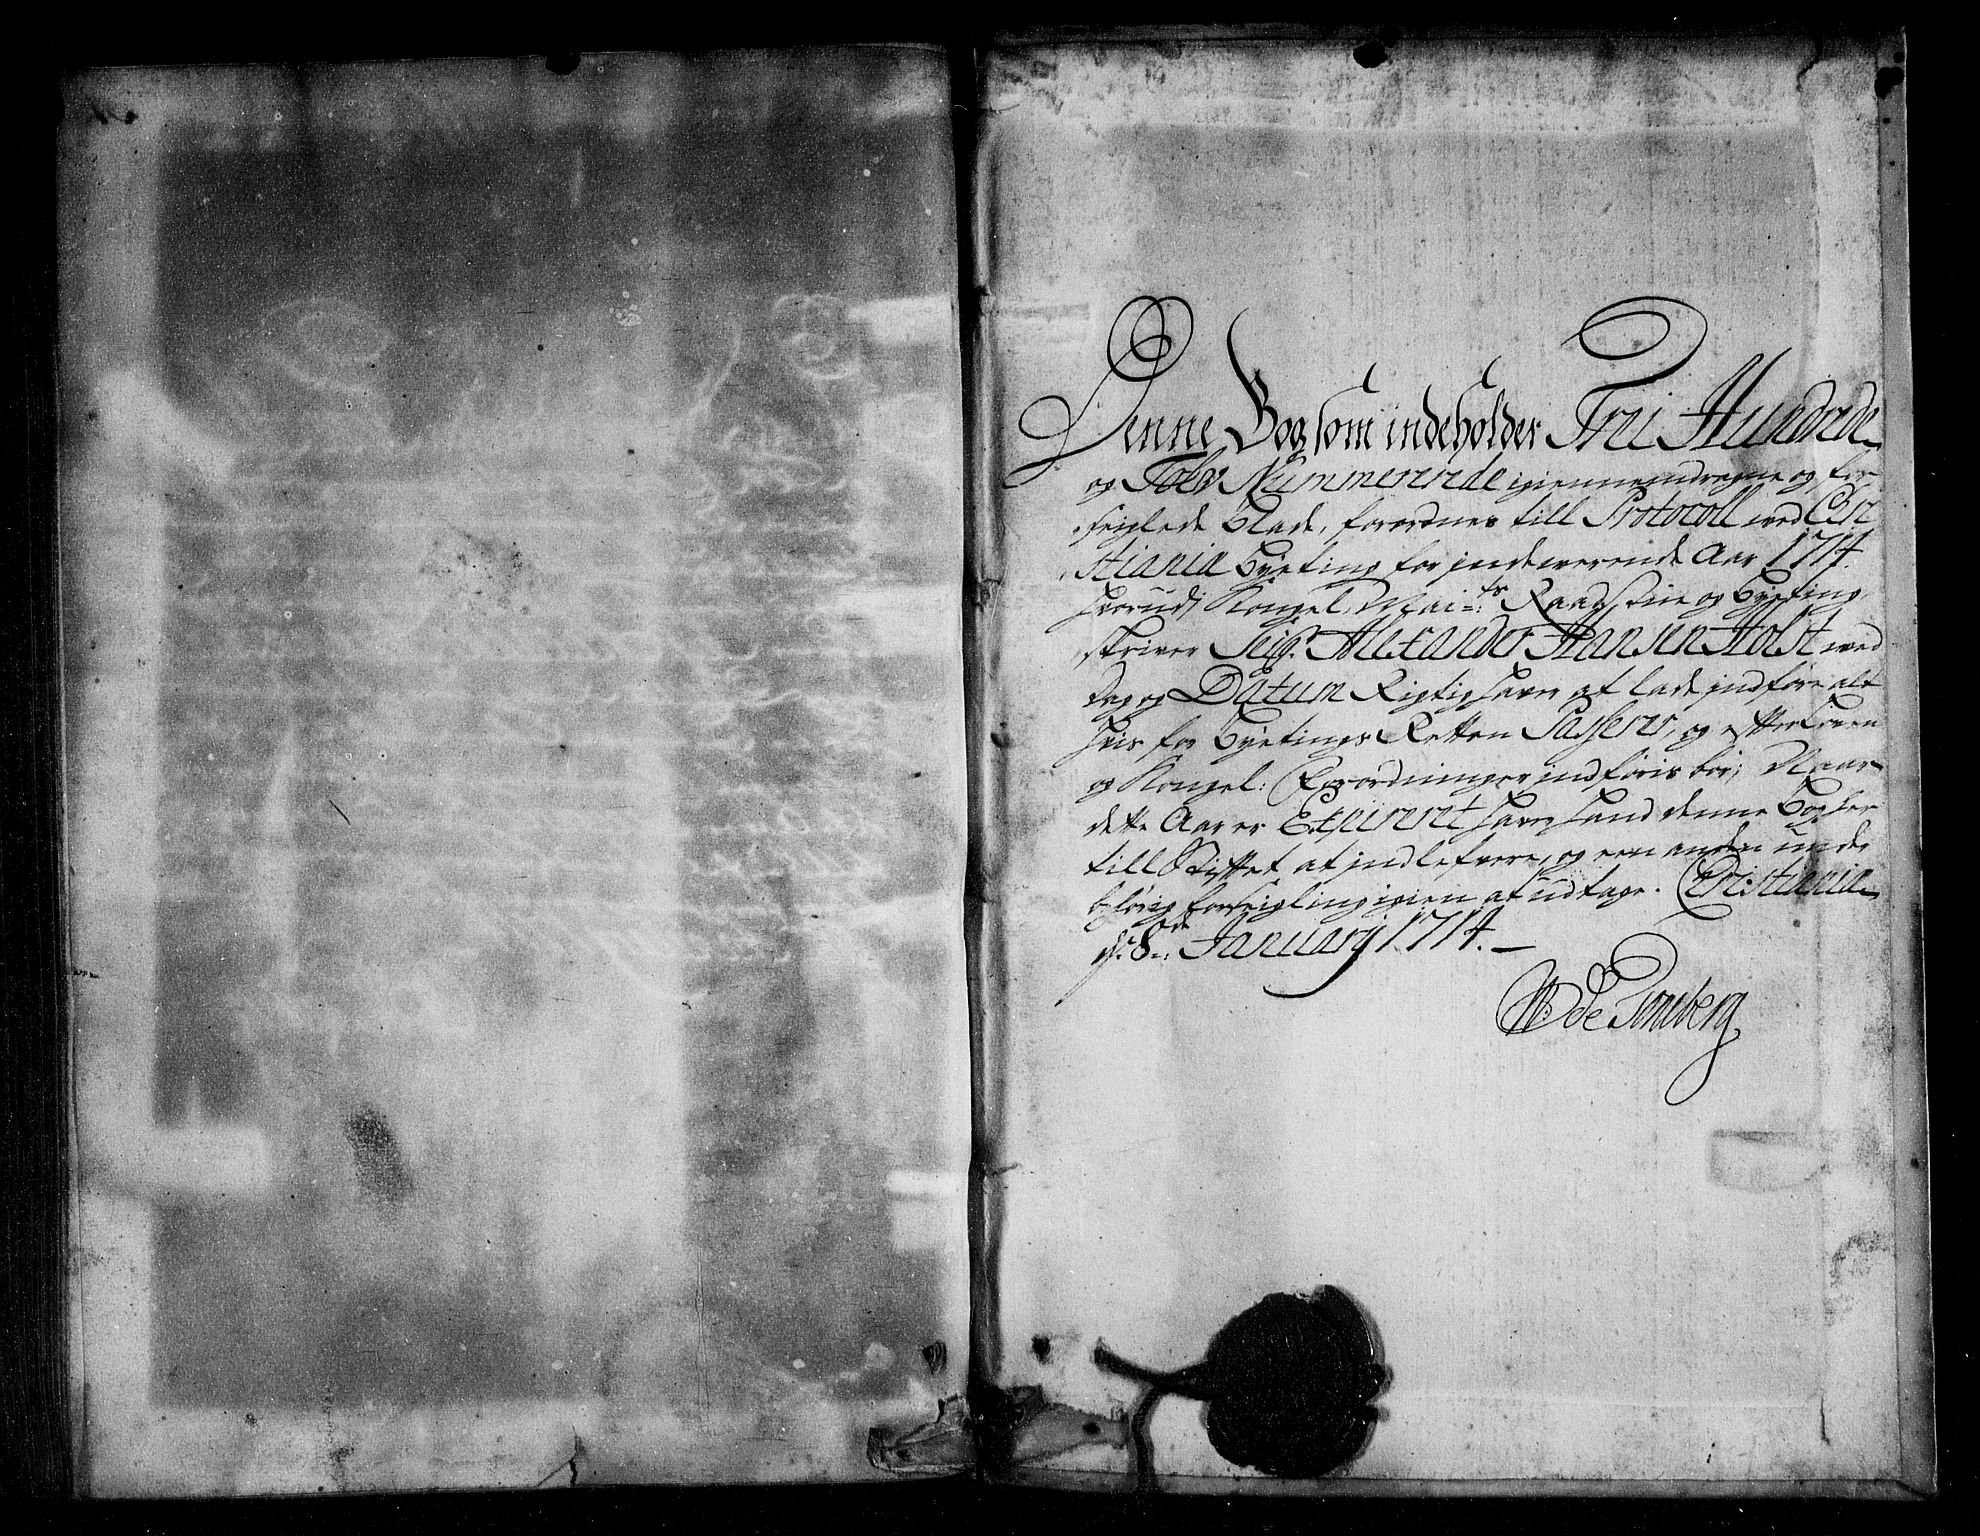 Denne Bog som indeholder Trei Hundrede
og Tolv Nummererede igiennemdragne og for¬
seiglede blade, forordnes till Protocoll ved Chri
stiania byeting for indeværende Aar 1714.
hvorudj Kongel. Mai:ts Raadstue og byeting
skriver Seigr. Alexander Hansen Holst med
dag og Datum Rigtig haver at lade indføre alt
hvis for byetings Retten Passerer, og efter Loven
og Kongel: Forordninger indføris bør; Naar
dette Aar er Expireret haver hand denne bog her
till Stiftet at indlefvere, og een anden under
behørig forseigling igien at udtage. Christiania
d: 8de January 1714.
W: de Tonsberg